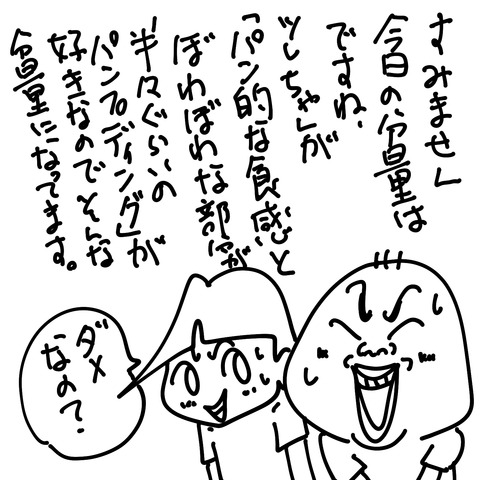 すみません
今日の分量は
ですね、
ツレちゃんが
「パン的な食感と
ぼわぼわな部分が
半々ぐらいの
パンプディング」が
好きなのでそんな
分量になってます。
ダメ
なの?